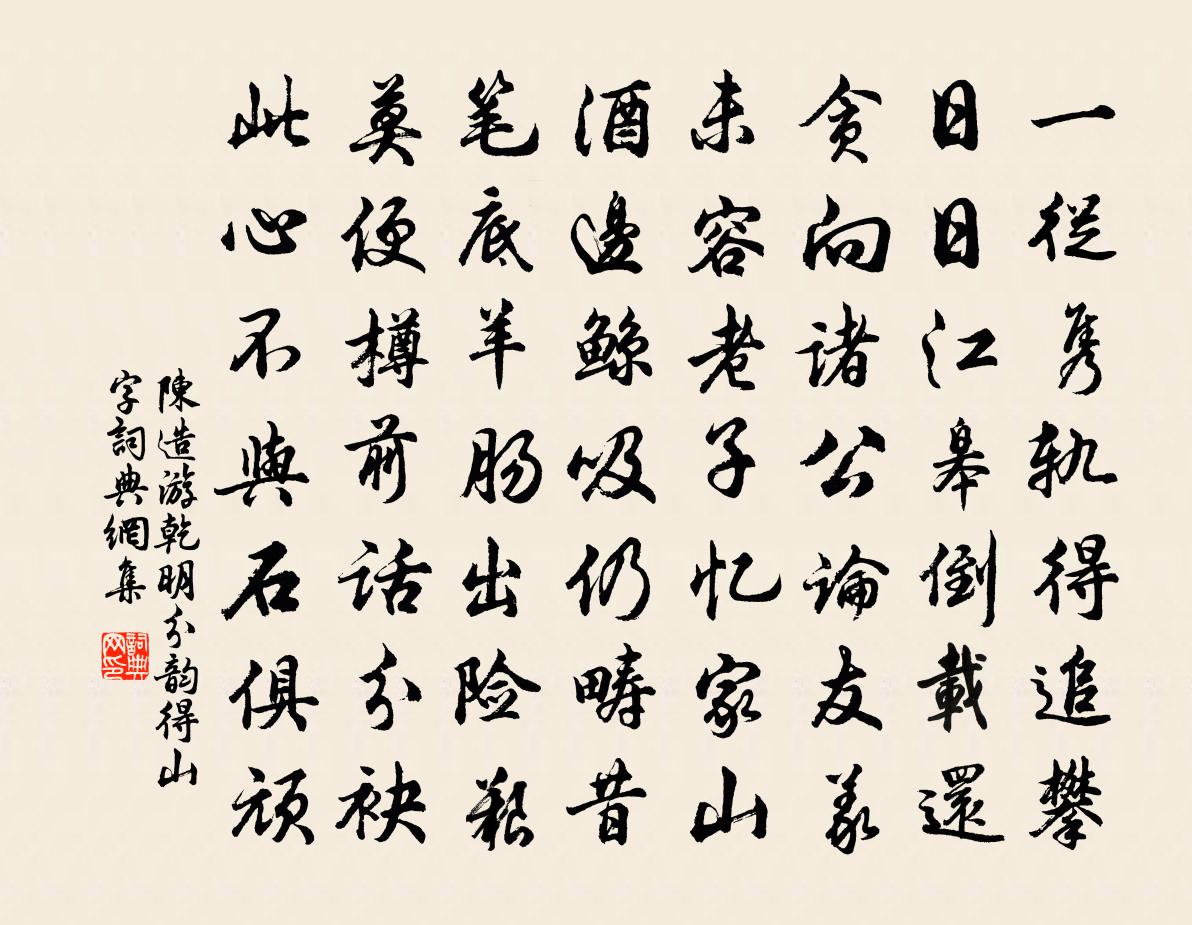 一從隽軌得追攀
日日江皋倒載還
贪向諸公論友義
未容老子忆家山
酒邊鯨吸仍疇昔
笔底羊肠出险艱
莫便樽前話分袂
此心不與石俱頑
陳造游乾明分韵得山
字詞典網集
詞典
网印